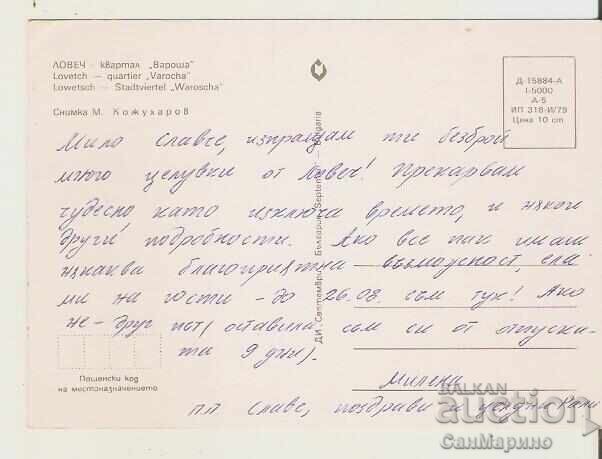 ЛОВЕЧ – квартал „Вароша"
Lovetch — quartier „Varocha"
Lowetsch — Stadtviertel „Waroscha"
Снимка М. Кожухаров
Д-15884-А
I-5000
А-5
ИП 318-И/79
Цена 10 ст
ДИ „Септември", България „Septemvri" — Bulgaria
Мило Славче, изпращам ти безброй
много целувки от Ловеч! Прекарвам
чудесно, като изключа времето, и някои
други подробности. Ако все пак имаш
някаква благоприятна възможност, ела
ми на гости – до 26.08. съм тук! Ако
не – друг път (оставила съм си от отпуска-
та 9 дни).
Милена
пп Славе, поздрави и
Пощенски код
на местоназначението
BALKAN
auction
СанМарино